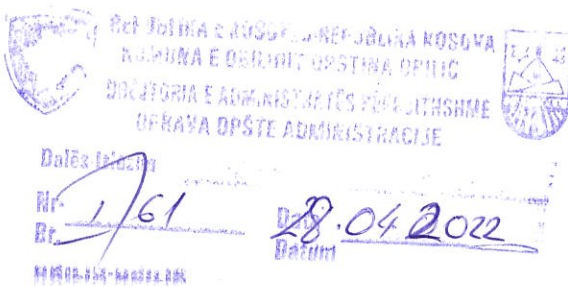 REPUBLIKA E KOSOVËS-REPUBLIKA KOSOVA
KOMUNA E OBILIQIT OPSTINA OPILIC
DREJTORIA E ADMINISTRATËS PËRGJITHSHME
UPRAVA OPŠTE ADMINISTRACIJE
Dalës-Izlazna
Nr. 1/61 Data 28.04.2022
Br. Datum